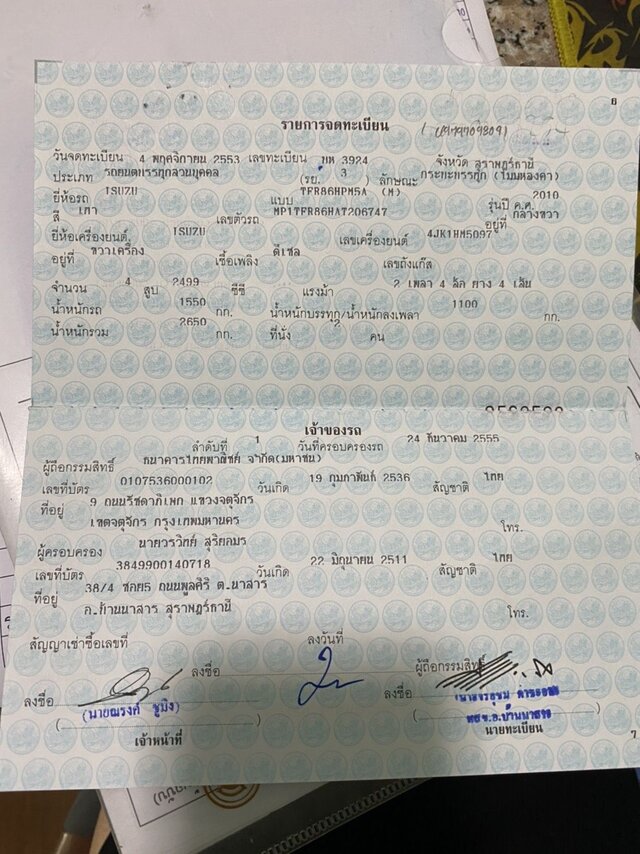 6
รายการจดทะเบียน
วันจดทะเบียน 4 พฤศจิกายน 2553 เลขทะเบียน บท 3924 จังหวัด สุราษฎร์ธานี
ประเภท รถยนต์บรรทุกส่วนบุคคล (รย. 3 ) ลักษณะ กระบะบรรทุก (ไม่มีหลังคา)
ยี่ห้อรถ ISUZU แบบ TFR86HPM5A (M) รุ่นปี ค.ศ. 2010
สี เทา เลขตัวรถ MP1TFR86HAT206747 อยู่ที่ กลางขวา
ยี่ห้อเครื่องยนต์ ISUZU เลขเครื่องยนต์ 4JK1HM5097
อยู่ที่ ขวาเครื่อง เชื้อเพลิง ดีเซล เลขถังแก๊ส
จำนวน 4 สูบ 2499 ซีซี แรงม้า 2 เพลา 4 ล้อ ยาง 4 เส้น
น้ำหนักรถ 1550 กก. น้ำหนักบรรทุก/น้ำหนักลงเพลา 1100 กก.
น้ำหนักรวม 2650 กก. ที่นั่ง 2 คน
เจ้าของรถ
ลำดับที่ 1 วันที่ครอบครองรถ 24 ธันวาคม 2555
ผู้ถือกรรมสิทธิ์ ธนาคารไทยพาณิชย์ จำกัด(มหาชน)
เลขที่บัตร 0107536000102 วันเกิด 19 กุมภาพันธ์ 2536 สัญชาติ ไทย
ที่อยู่ 9 ถนนรัชดาภิเษก แขวงจตุจักร
เขตจตุจักร กรุงเทพมหานคร โทร.
ผู้ครอบครอง นายวรวิทย์ สุริยอมร
เลขที่บัตร 3849900140718 วันเกิด 22 มิถุนายน 2511 สัญชาติ ไทย
ที่อยู่ 38/4 ซอย5 ถนนพูลศิริ ต.นาสาร
อ.บ้านนาสาร สุราษฎร์ธานี โทร.
สัญญาเช่าซื้อเลขที่ ลงวันที่
ลงชื่อ ผู้ถือกรรมสิทธิ์
ลงชื่อ ลงชื่อ
(นายณรงค์ ชูมิ่ง)
อ.บ้านนาสาร
เจ้าหน้าที่ นายทะเบียน
7